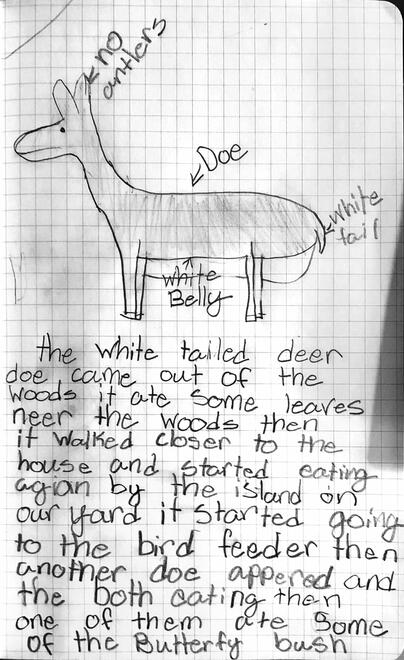 no
antlers
Doe
white
tail
white
Belly
the white tailed deer
doe came out of the
woods it ate some leaves
neer the woods then
it walked closer to the
house and started eating
agian by the island on
our yard it started going
to the bird feeder then
another doe appered and
the both eating then
one of them ate some
of the Butterfy bush